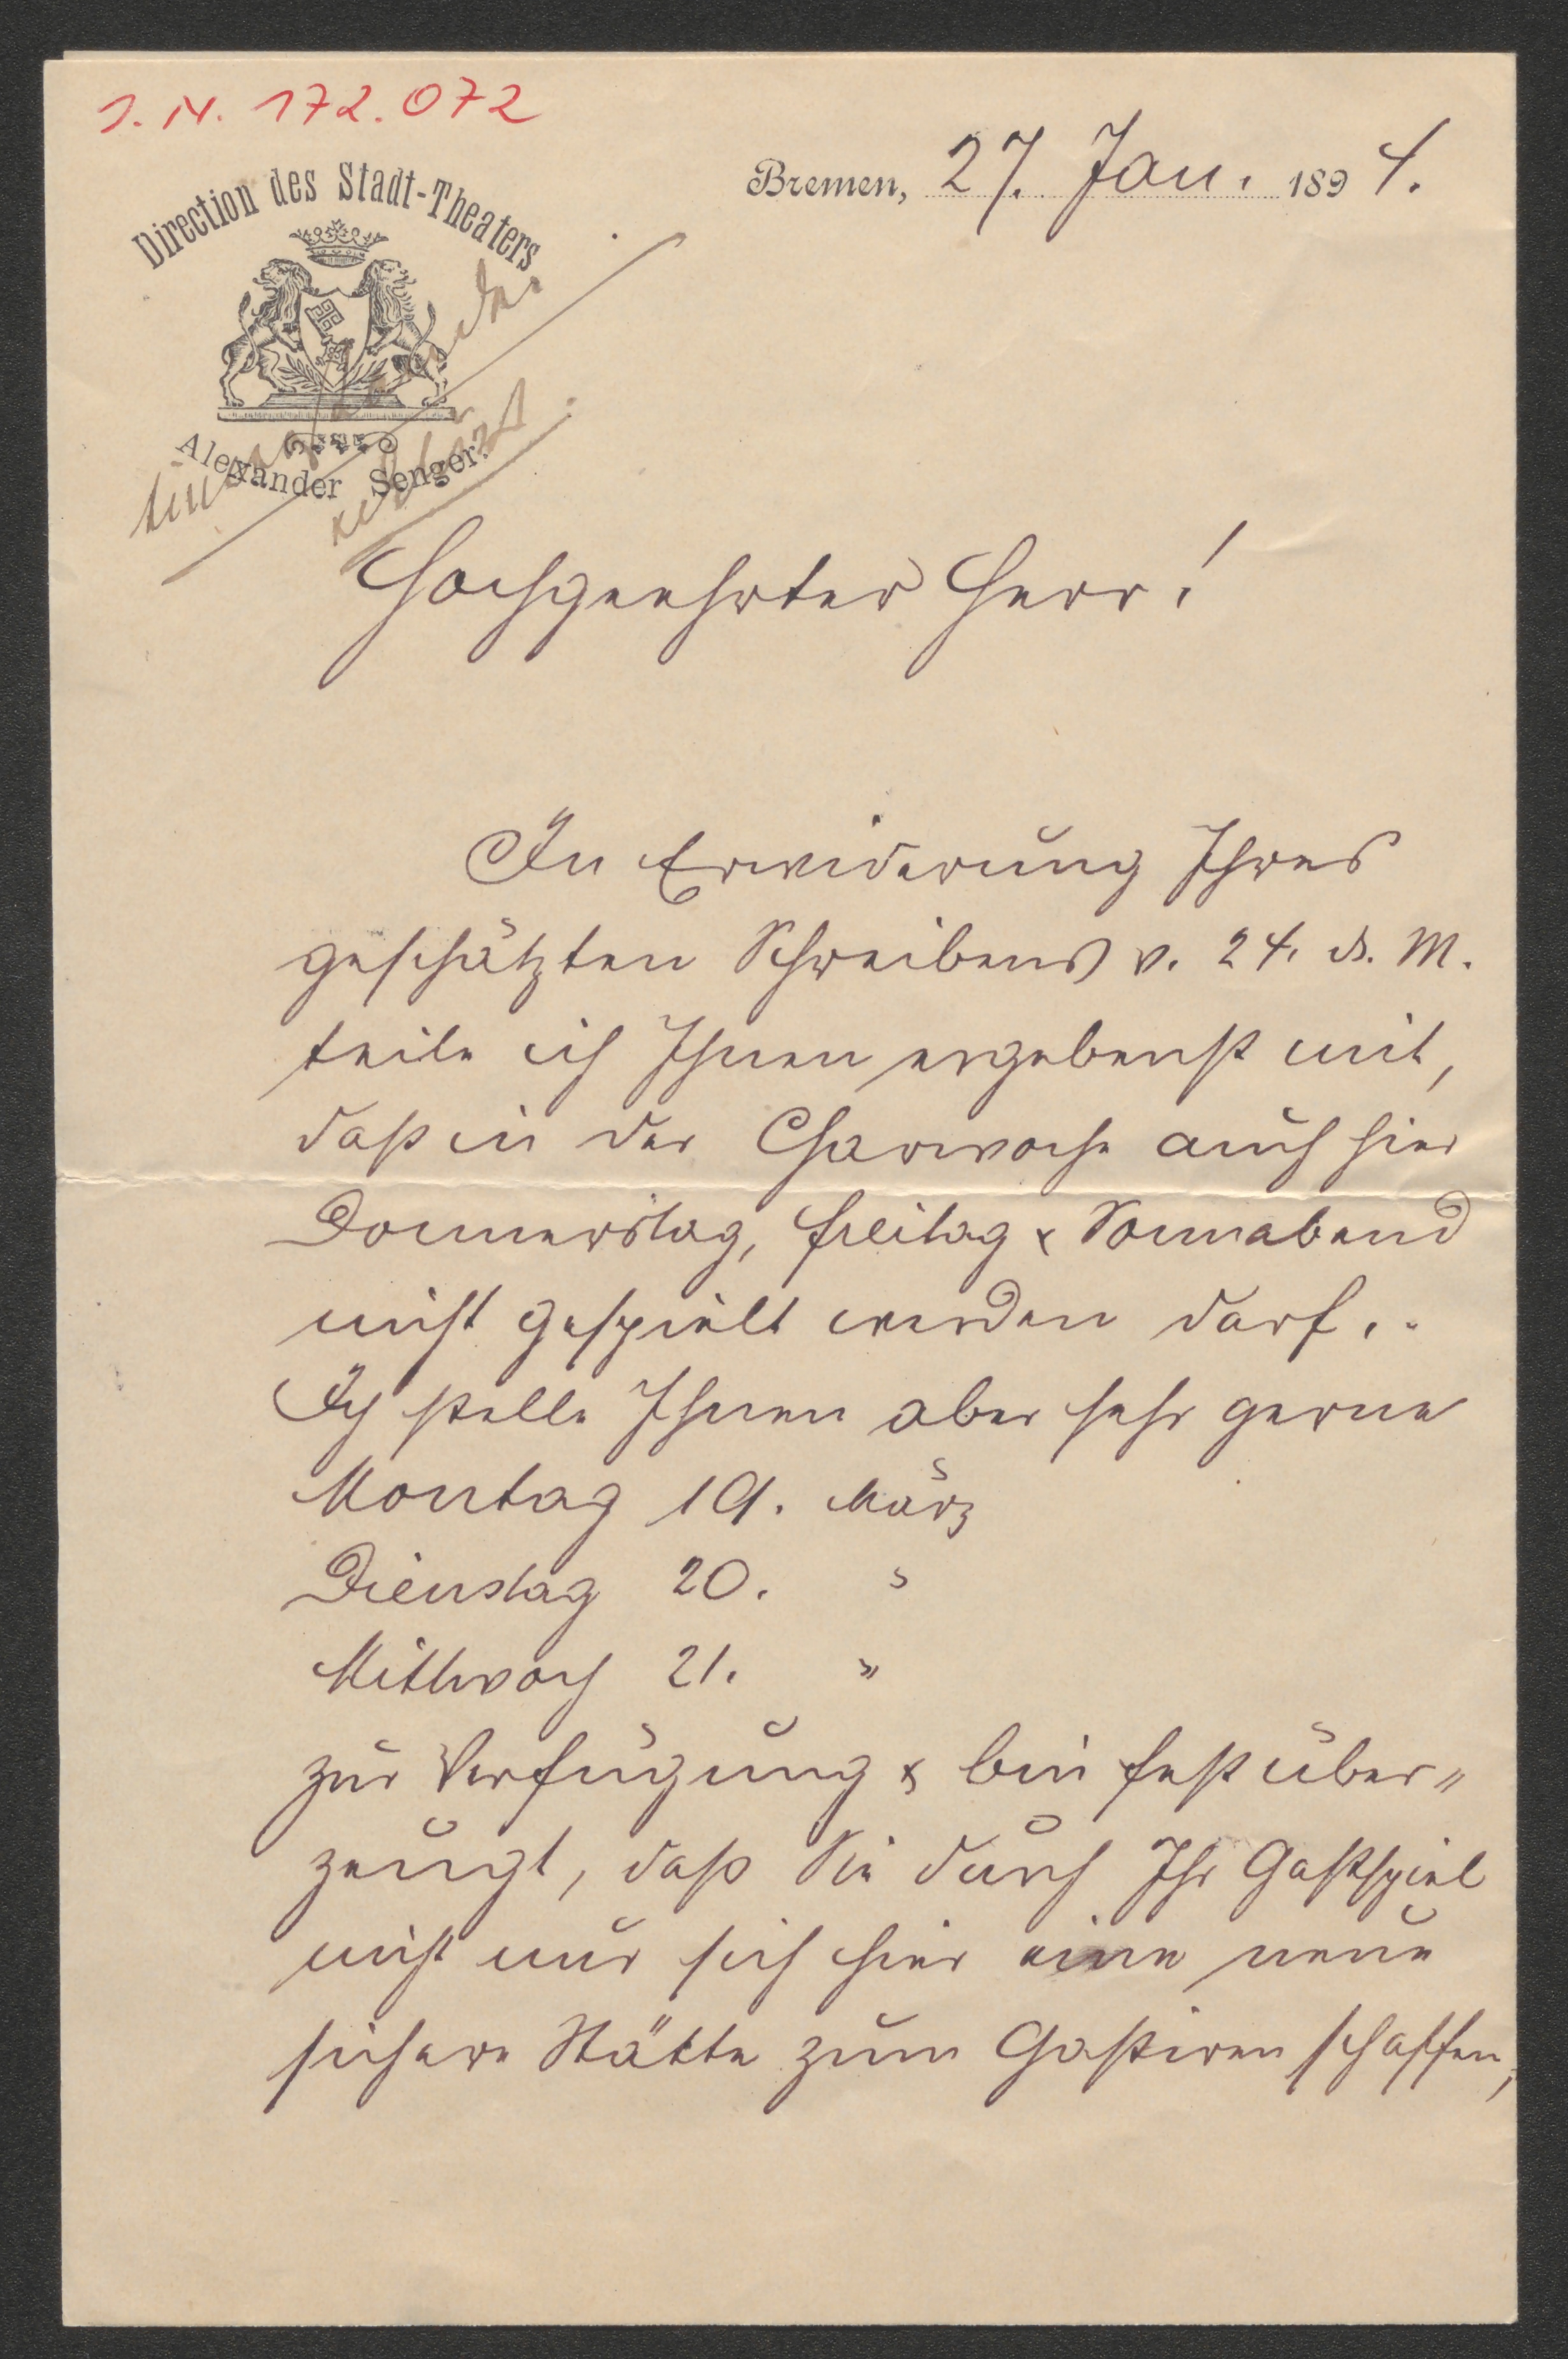 J. N. 172.072
Bremen, 27. Jan. 1894.
Direction des Stadt-Theaters
Alexander Senger.
Hochgeehrter Herr!
In Erwiderung Ihres
geschätzten Schreibens v. 24. ds. M.
teile ich Ihnen ergebenst mit,
daß in der Charwoche auch hier
Donnerstag, Freitag & Sonnabend
nicht gespielt werden darf.
Ich stelle Ihnen aber sehr gerne
Montag 19. März
Dienstag 20. "
Mittwoch 21. "
zur Verfügung & bin fest über-
zeugt, daß Sie durch Ihr Gastspiel
nicht nur sich hier eine neue
sichere Stätte zum Gastiren schaffen,